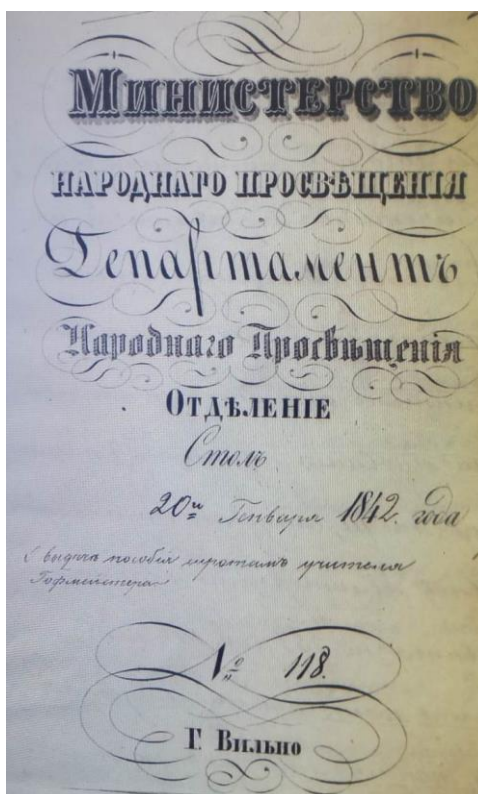 Министерство
НАРОДНАГО ПРОСВѢЩЕНІЯ
Департаментъ
Народнаго Просвѣщенія
ОТДѢЛЕНІЕ
Столъ
20го Генваря 1842. года
О выдаче пособія сиротамъ учителя
Гофмейстера
№ 118.
Г. Вильно